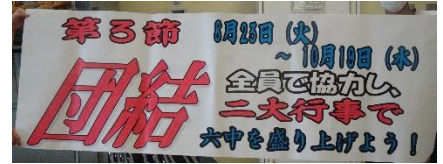 第3節
8月23日(火)
～10月19日(水)
団結
全員で協力し、
二大行事で
六中を盛り上げよう!